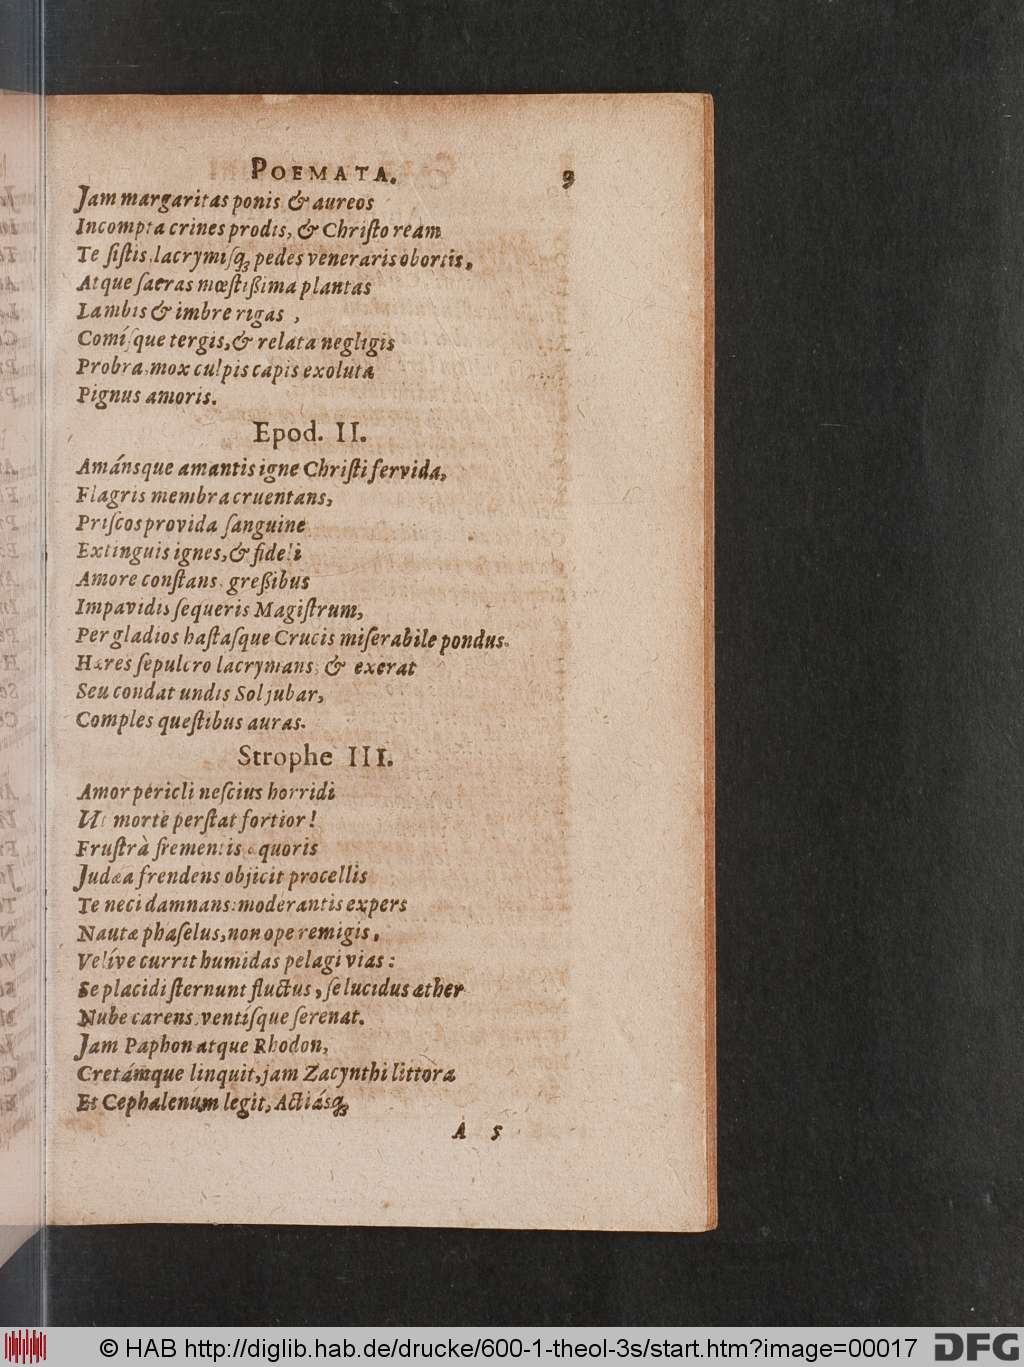 POEMATA. 9
Jam margaritas ponis & aureos
Incompta crines prodis, & Christo ream
Te sistis, lacrymisq́; pedes veneraris obortis,
Atque sacras mœstißima plantas
Lambis & imbre rigas ,
Comísque tergis, & relata negligis
Probra, mox culpis capis exoluta
Pignus amoris.
Epod. II.
Amánsque amantis igne Christi fervida,
Flagris membra cruentans,
Priscos provida sanguine
Extinguis ignes, & fideli
Amore constans, greßibus
Impavidis sequeris Magistrum,
Per gladios hastasque Crucis miserabile pondus.
Hæres sepulcro lacrymans, & exerat
Seu condat undis Sol jubar,
Comples questibus auras.
Strophe III.
Amor péricli nescius horridi
Ut morte perstat fortior!
Frustrà frementis æquoris
Judæa frendens objicit procellis
Te neci damnans: moderantis expers
Nautæ phaselus, non ope remigis,
Velíve currit humidas pelagi vias:
Se placidi sternunt fluctus, se lucidus æther
Nube carens, ventísque serenat.
Jam Paphon atque Rhodon,
Cretámque linquit, jam Zacynthi littora
Et Cephalenúm legit, Actiásq;
A 5
© HAB http://diglib.hab.de/drucke/600-1-theol-3s/start.htm?image=00017 DFG